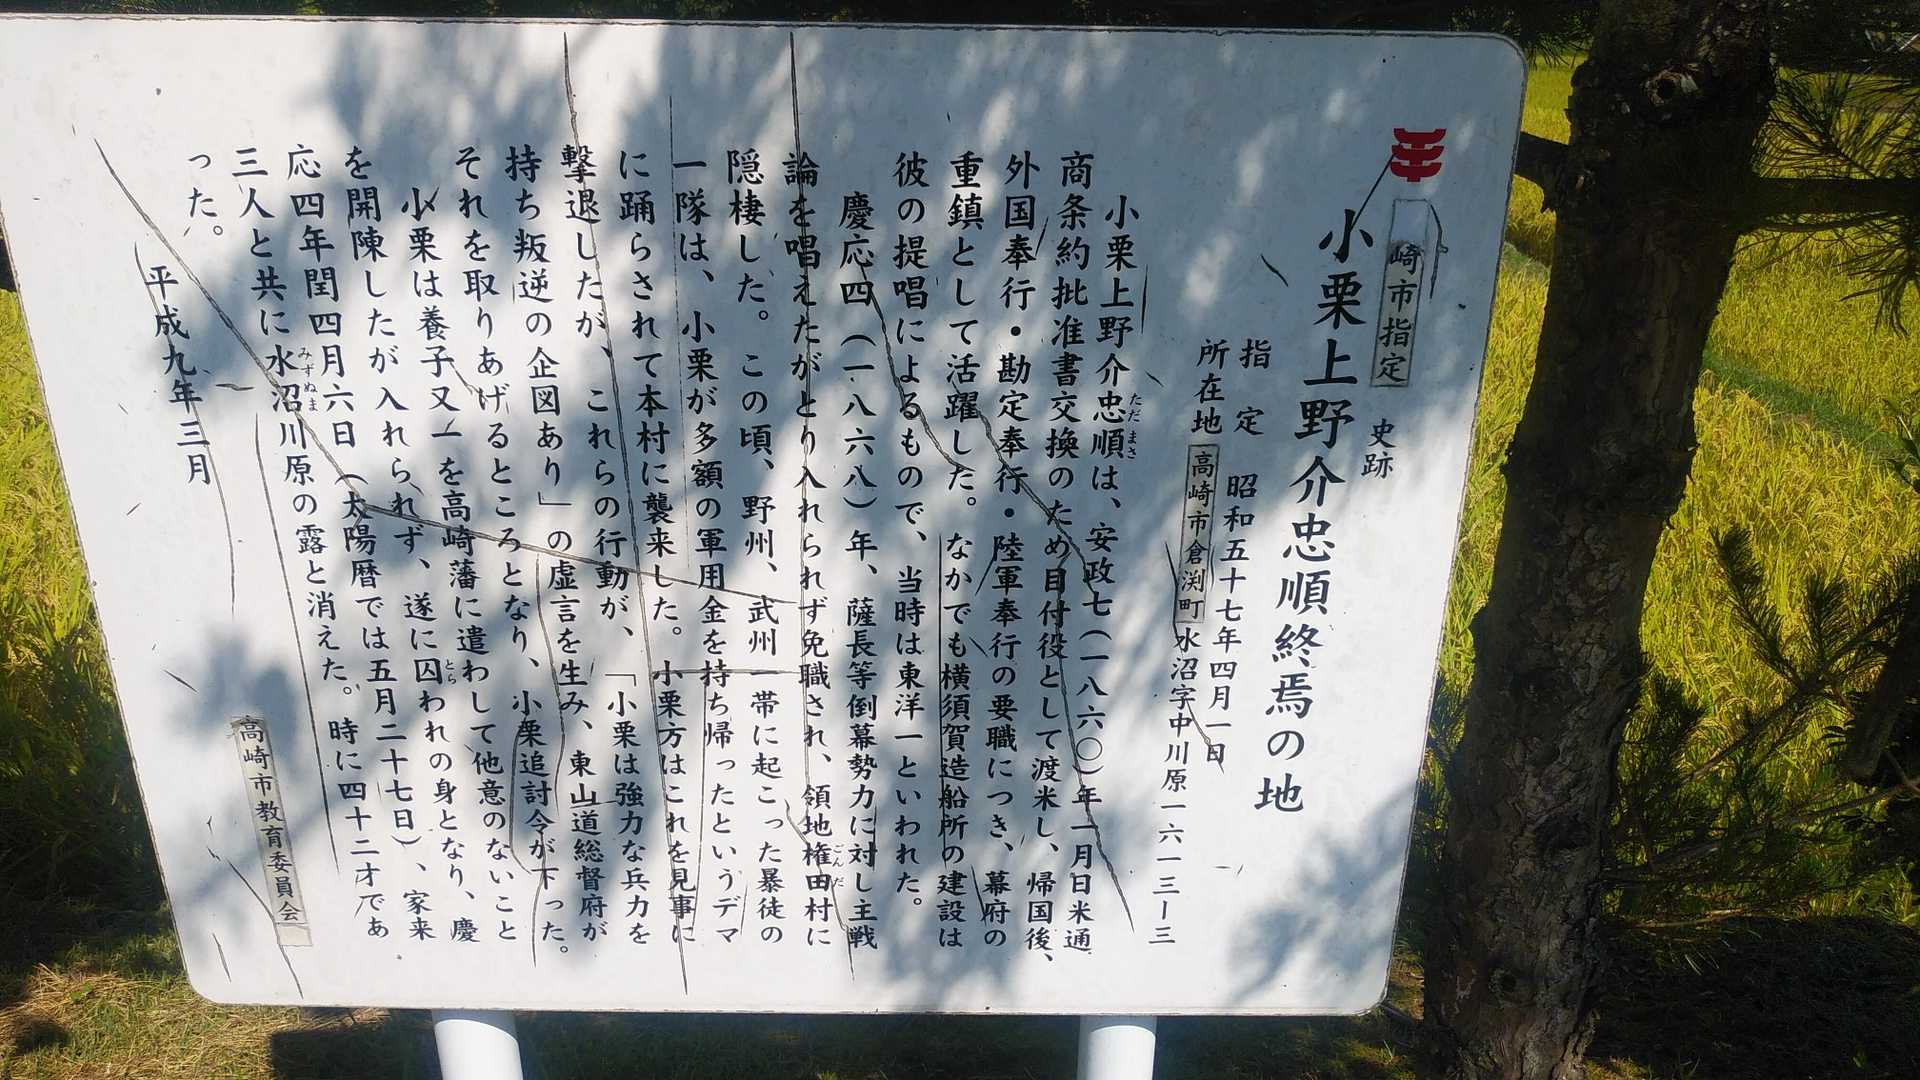 崎市指定　史跡
小栗上野介忠順終焉の地
指定　昭和五十七年四月一日
所在地　高崎市倉渕町水沼字中川原一六一三ー三
小栗上野介忠順は、安政七（一八六〇）年一月日米通
ただまさ
商条約批准書交換のため目付役として渡米し、帰国後、
外国奉行・勘定奉行・陸軍奉行の要職につき、幕府の
重鎮として活躍した。なかでも横須賀造船所の建設は
彼の提唱によるもので、当時は東洋一といわれた。
慶応四（一八六八）年、薩長等倒幕勢力に対し主戦
論を唱えたがとり入れられず免職され、領地権田村に
ごんだ
隠棲した。この頃、野州、武州一帯に起こった暴徒の
一隊は、小栗が多額の軍用金を持ち帰ったというデマ
に踊らされて本村に襲来した。小栗方はこれを見事に
撃退したが、これらの行動が、「小栗は強力な兵力を
持ち叛逆の企図あり」の虚言を生み、東山道総督府が
それを取りあげるところとなり、小栗追討令が下った。
小栗は養子又一を高崎藩に遣わして他意のないこと
を開陳したが入れられず、遂に囚われの身となり、慶
とら
応四年閏四月六日（太陽暦では五月二十七日）、家来
三人と共に水沼川原の露と消えた。時に四十二才であ
みずぬま
った。
平成九年三月
高崎市教育委員会